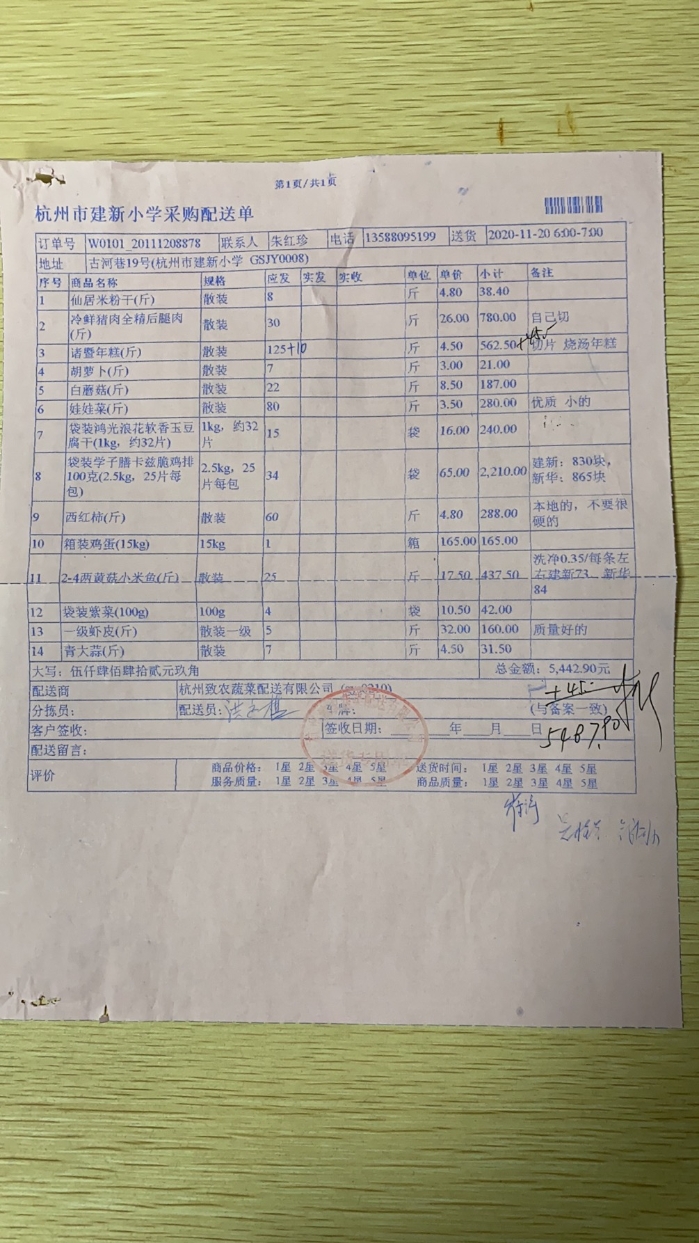 第1页/共1页
杭州市建新小学采购配送单
订单号 W0101_20111208878 联系人 朱红珍 电话 13588095199 送货 2020-11-20 6:00-7:00
地址 古河巷19号(杭州市建新小学 GSJY0008)
序号 商品名称 规格 应发 实发 实收 单位 单价 小计 备注
1 仙居米粉干(斤) 散装 8 斤 4.80 38.40
2 冷鲜猪肉全精后腿肉(斤) 散装 30 斤 26.00 780.00 自己切
3 诸暨年糕(斤) 散装 125+10 斤 4.50 562.50+45 切片 烧汤年糕
4 胡萝卜(斤) 散装 7 斤 3.00 21.00
5 白蘑菇(斤) 散装 22 斤 8.50 187.00
6 娃娃菜(斤) 散装 80 斤 3.50 280.00 优质 小的
7 袋装鸿光浪花软香玉豆腐干(1kg，约32片) 1kg，约32片 15 袋 16.00 240.00
8 袋装学子膳卡兹脆鸡排100克(2.5kg，25片每包) 2.5kg，25片每包 34 袋 65.00 2,210.00 建新：830块，新华：865块
9 西红柿(斤) 散装 60 斤 4.80 288.00 本地的，不要很硬的
10 箱装鸡蛋(15kg) 15kg 1 箱 165.00 165.00
11 2-4两黄菇小米鱼(斤) 散装 25 斤 17.50 437.50 洗净0.35/每条左右建新73 新华84
12 袋装紫菜(100g) 100g 4 袋 10.50 42.00
13 一级虾皮(斤) 散装一级 5 斤 32.00 160.00 质量好的
14 青大蒜(斤) 散装 7 斤 4.50 31.50
大写：伍仟肆佰肆拾贰元玖角 总金额：5,442.90元
配送商 杭州致农蔬菜配送有限公司
+45
分拣员： 配送员： 车牌： (与备案一致)
客户签收： 签收日期： 年 月 日 5487.90
配送留言：
评价 商品价格： 1星 2星 3星 4星 5星 送货时间： 1星 2星 3星 4星 5星
服务质量： 1星 2星 3星 4星 5星 商品质量： 1星 2星 3星 4星 5星